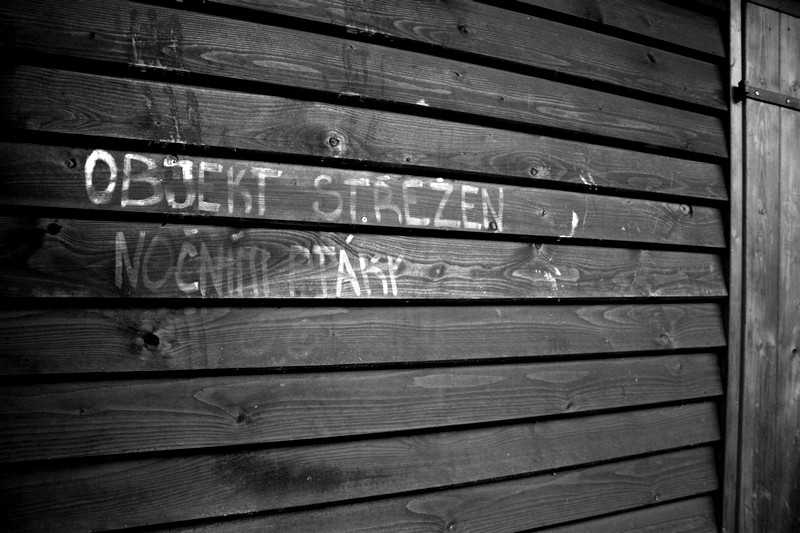 OBJEKT STŘEŽEN
NOČNÍMI PTÁKY